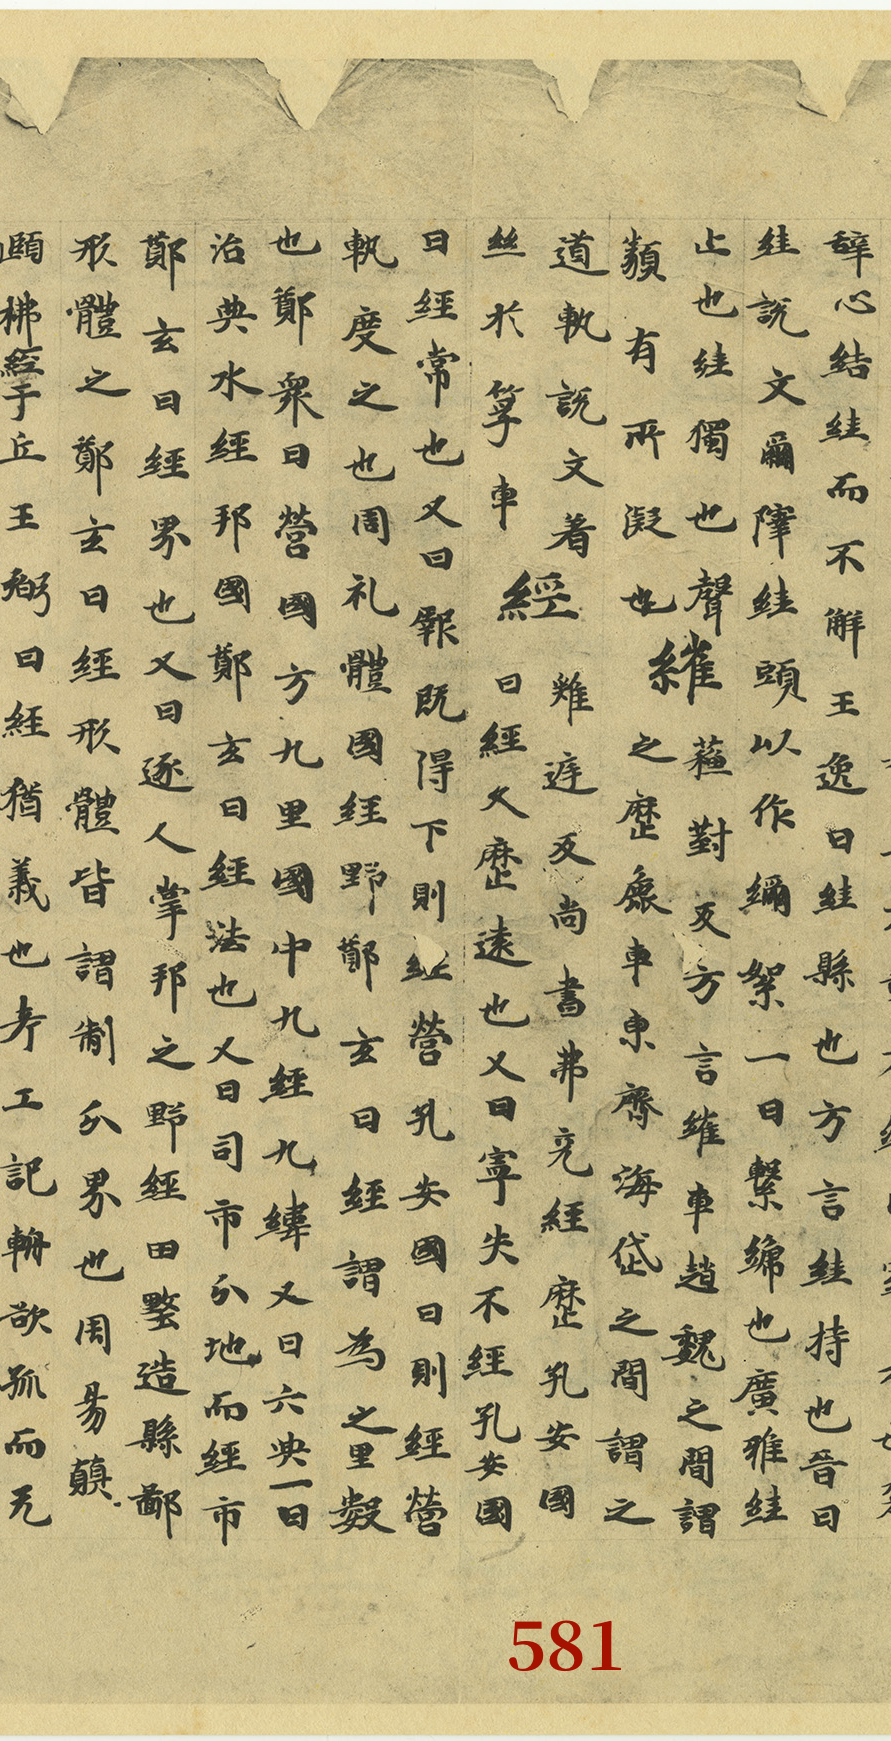 辞心結絓而不解王逸曰絓縣也方言絓持也晉曰
絓説文爾滓絓頭以作繝絮一曰繫綈也廣雅絓
止也絓獨也聲 䕷對反方言維車趙魏之間謂
纇有所凝也 繀 之歷鹿車東齊海岱之間謂之
道軌説文着 難遅反尚書弗克經歷孔安國
絲於筟車 經 曰經久歷遠也又曰寧失不經孔安國
曰經常也又曰厥既得卜則經營孔安國曰則經營
軌度之也周礼體國經野鄭玄曰經謂為之里數
也鄭衆曰營國方九里國中九經九緯又曰六典一曰
治典水經邦國鄭玄曰經法也又曰司市分地而經市
鄭玄曰經界也又曰逐人掌邦之野經田野造縣鄙
形體之鄭玄曰經形體皆謂制分界也周易顛
頤拂經于丘王弼曰經猶義也考工記輈欲孤而无
581